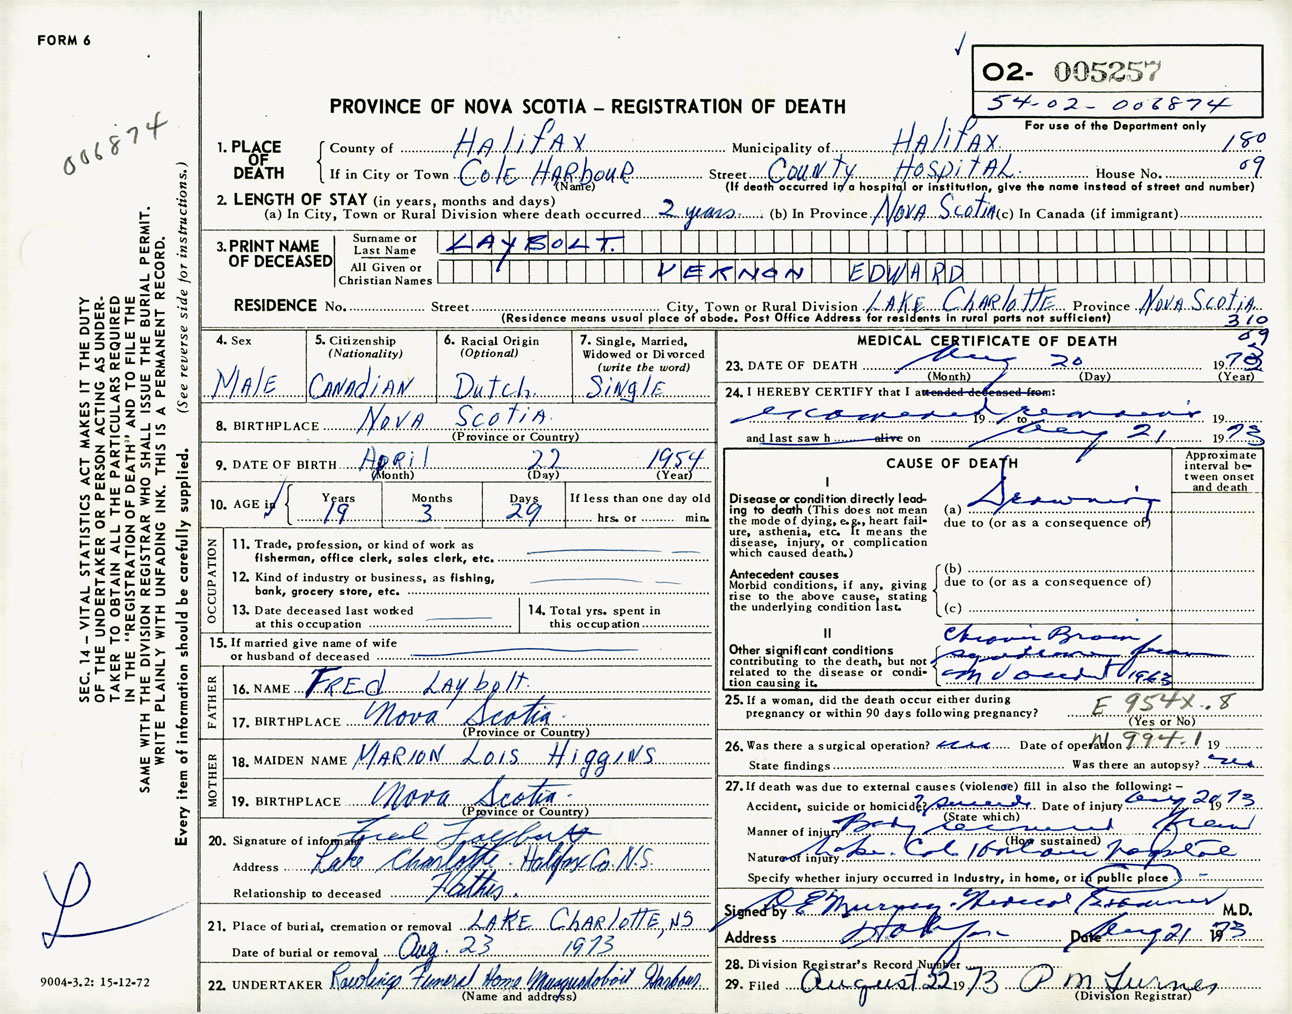 FORM 6
O2- 005257
54-02-006874
For use of the Department only
006874
PROVINCE OF NOVA SCOTIA – REGISTRATION OF DEATH
1. PLACE OF DEATH
County of Halifax Municipality of Halifax 180
If in City or Town Cole Harbour Street County Hospital House No. 09
(Name) (If death occurred in a hospital or institution, give the name instead of street and number)
2. LENGTH OF STAY (in years, months and days)
(a) In City, Town or Rural Division where death occurred 2 years (b) In Province Nova Scotia (c) In Canada (if immigrant)
3. PRINT NAME OF DECEASED
Surname or Last Name LAYBOLT.
All Given or Christian Names VERNON EDWARD
RESIDENCE No. Street City, Town or Rural Division LAKE CHARLOTTE Province NOVA SCOTIA
(Residence means usual place of abode. Post Office Address for residents in rural parts not sufficient) 310
09
4. Sex MALE
5. Citizenship (Nationality) CANADIAN
6. Racial Origin (Optional) Dutch.
7. Single, Married, Widowed or Divorced (write the word) Single
8. BIRTHPLACE NOVA SCOTIA
(Province or Country)
9. DATE OF BIRTH April 22 1954
(Month) (Day) (Year)
10. AGE in Years 19 Months 3 Days 29 If less than one day old hrs. or min.
OCCUPATION
11. Trade, profession, or kind of work as fisherman, office clerk, sales clerk, etc.
12. Kind of industry or business, as fishing, bank, grocery store, etc.
13. Date deceased last worked at this occupation
14. Total yrs. spent in this occupation
15. If married give name of wife or husband of deceased
FATHER
16. NAME FRED Laybolt.
17. BIRTHPLACE Nova Scotia.
(Province or Country)
MOTHER
18. MAIDEN NAME MARION LOIS HIGGINS
19. BIRTHPLACE Nova Scotia.
(Province or Country)
20. Signature of informant Fred Laybolt
Address Lake Charlotte. Halifax Co. N.S.
Relationship to deceased Father.
21. Place of burial, cremation or removal LAKE CHARLOTTE, NS
Date of burial or removal Aug 23 1973
22. UNDERTAKER Rawlings Funeral Home Musquodoboit Harbour.
(Name and address)
MEDICAL CERTIFICATE OF DEATH
23. DATE OF DEATH Aug 20 1973
(Month) (Day) (Year)
24. I HEREBY CERTIFY that I attended deceased from:
examined remains 19 to 19
and last saw h alive on Aug 21 1973
CAUSE OF DEATH
Approximate interval between onset and death
I
Disease or condition directly leading to death (This does not mean the mode of dying, e.g., heart failure, asthenia, etc. It means the disease, injury, or complication which caused death.)
(a) Drowning
due to (or as a consequence of)
Antecedent causes
Morbid conditions, if any, giving rise to the above cause, stating the underlying condition last.
(b)
due to (or as a consequence of)
(c)
II
Other significant conditions contributing to the death, but not related to the disease or condition causing it.
Chronic Brain
syndrome from
accident 1963
25. If a woman, did the death occur either during pregnancy or within 90 days following pregnancy? E 954X.8
(Yes or No)
26. Was there a surgical operation? Date of operation N 994.1 19
State findings Was there an autopsy?
27. If death was due to external causes (violence) fill in also the following: –
Accident, suicide or homicide? ? suicide Date of injury Aug 20 1973
(State which)
Manner of injury Body recovered from
(How sustained)
Nature of injury Lake. Cole Harbour Hospital
Specify whether injury occurred in industry, in home, or in public place
Signed by Murray Medical Examiner M.D.
Address Halifax Date Aug 21 1973
28. Division Registrar's Record Number
29. Filed August 22 1973 P M Turner
(Division Registrar)
SEC. 14 – VITAL STATISTICS ACT MAKES IT THE DUTY
OF THE UNDERTAKER OR PERSON ACTING AS UNDER-
TAKER TO OBTAIN ALL THE PARTICULARS REQUIRED
IN THE "REGISTRATION OF DEATH" AND TO FILE THE
SAME WITH THE DIVISION REGISTRAR WHO SHALL ISSUE THE BURIAL PERMIT.
WRITE PLAINLY WITH UNFADING INK. THIS IS A PERMANENT RECORD.
Every item of information should be carefully supplied. (See reverse side for instructions.)
L
9004-3.2: 15-12-72